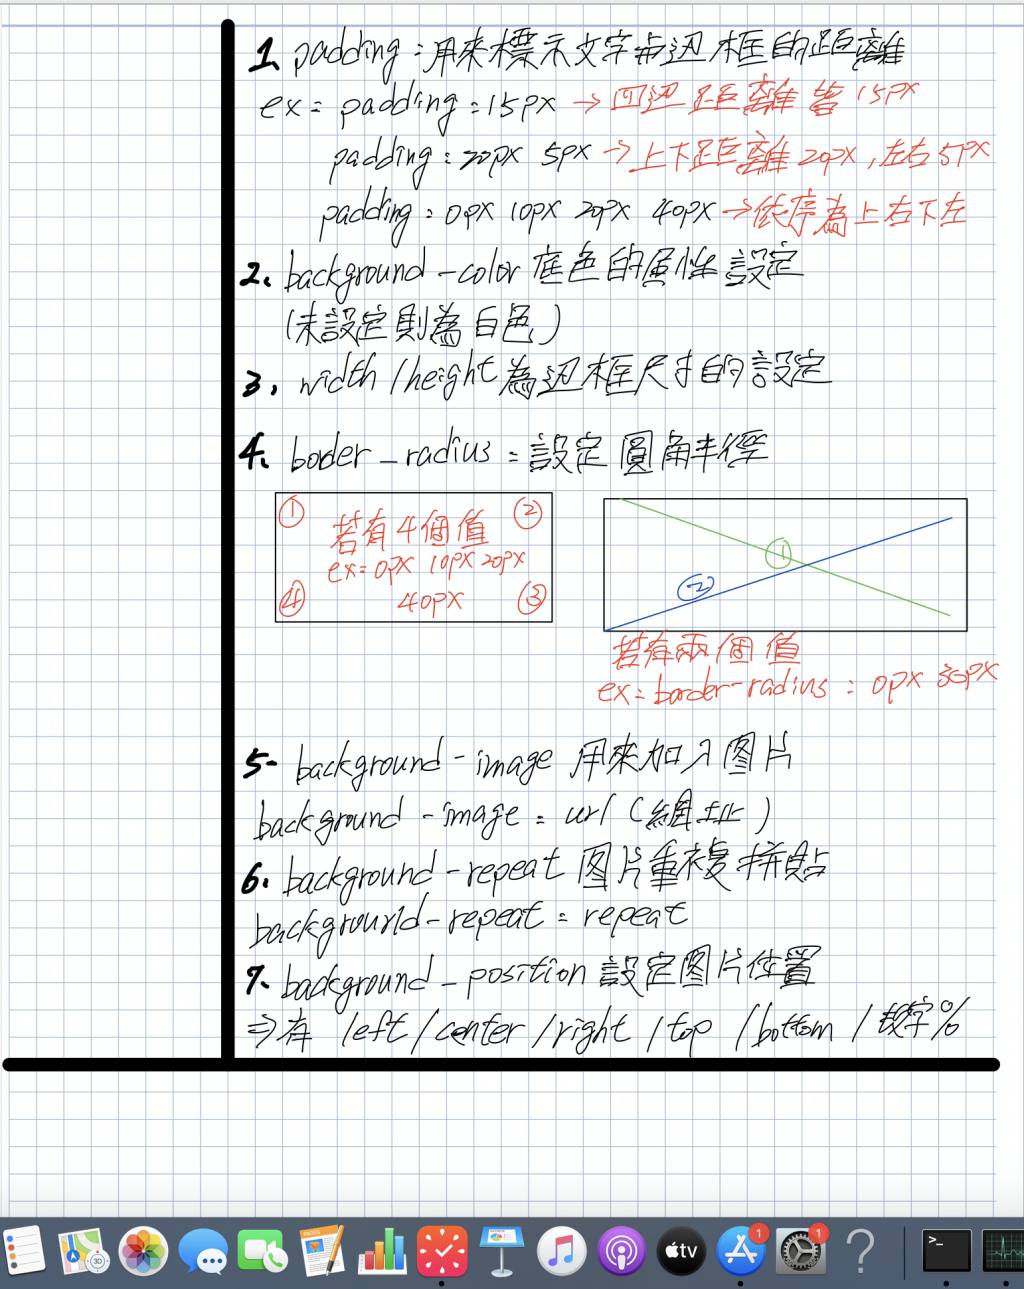 1. padding:用來標示文字與边框的距離
ex= padding:15px → 四边距離皆15px
padding:20px 5px → 上下距離20px,左右5px
padding:0px 10px 20px 40px → 依序為上右下左
2. background-color 底色的属性設定
(未設定則為白色)
3. width/height為边框尺寸的設定
4. border-radius:設定圓角半徑
① ②
若有4個值
ex=0px 10px 20px
40px
④ ③
①
②
若有兩個值
ex=border-radius:0px 30px
5- background-image 用來加入图片
background-image:url(網址)
6. background-repeat 图片重複拼貼
background-repeat:repeat
7. background-position 設定图片位置
⇒有 left/center/right/top/bottom/数字%
3D
tv
1
1
?
>_